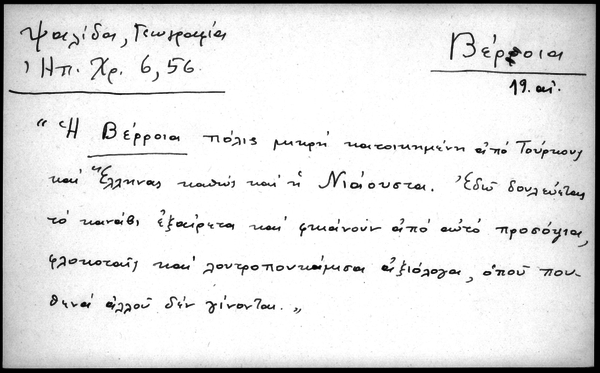 Ψαλίδα, Γεωγραφία
Ἠπ. Χρ. 6, 56.
Βέρροια
19. αἰ.
"Ἡ Βέρροια πόλις μικρή κατοικημένη ἀπό Τούρκους
καί Ἕλληνας καθώς καί ἡ Νιάουστα. Ἐδῶ δουλεύεται
τό κανάβι ἐξαίρετα καί φκιάνουν ἀπό αὐτό προσόψια,
φλοκοταῖς καί λουτροπουκάμισα ἀξιόλογα, ὁποῦ που-
θενά ἀλλοῦ δέν γίνονται."